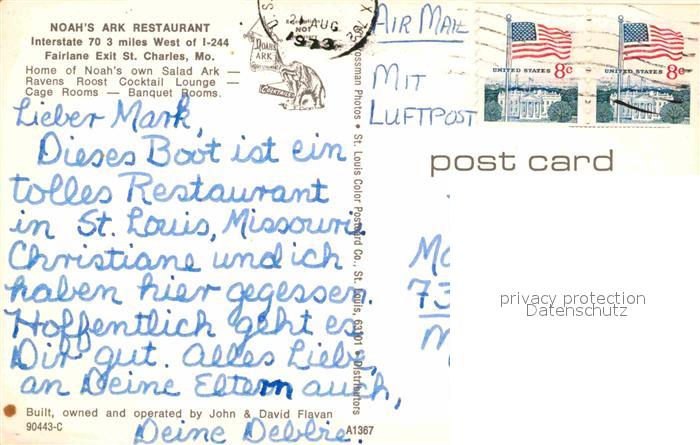 NOAH'S ARK RESTAURANT
Interstate 70 3 miles West of I-244
Fairlane Exit St. Charles, Mo.
Home of Noah's own Salad Ark —
Ravens Roost Cocktail Lounge —
Cage Rooms — Banquet Rooms.
Lieber Mark,
Dieses Boot ist ein
tolles Restaurant
in St. Louis, Missouri.
Christiane und ich
haben hier gegessen.
Hoffentlich geht es
Dir gut. Alles Liebe,
an Deine Eltern auch,
Deine Debbie.
Built, owned and operated by John & David Flavan
90443-C
A1367
NOAHS
ARK
21 AUG
1973
Photos • St. Louis Color Postcard Co., St. Louis, 63101 • Distributors
AIR MAIL
MIT
LUFTPOST
UNITED STATES 8c
UNITED STATES 8c
post card
73
privacy protection
Datenschutz